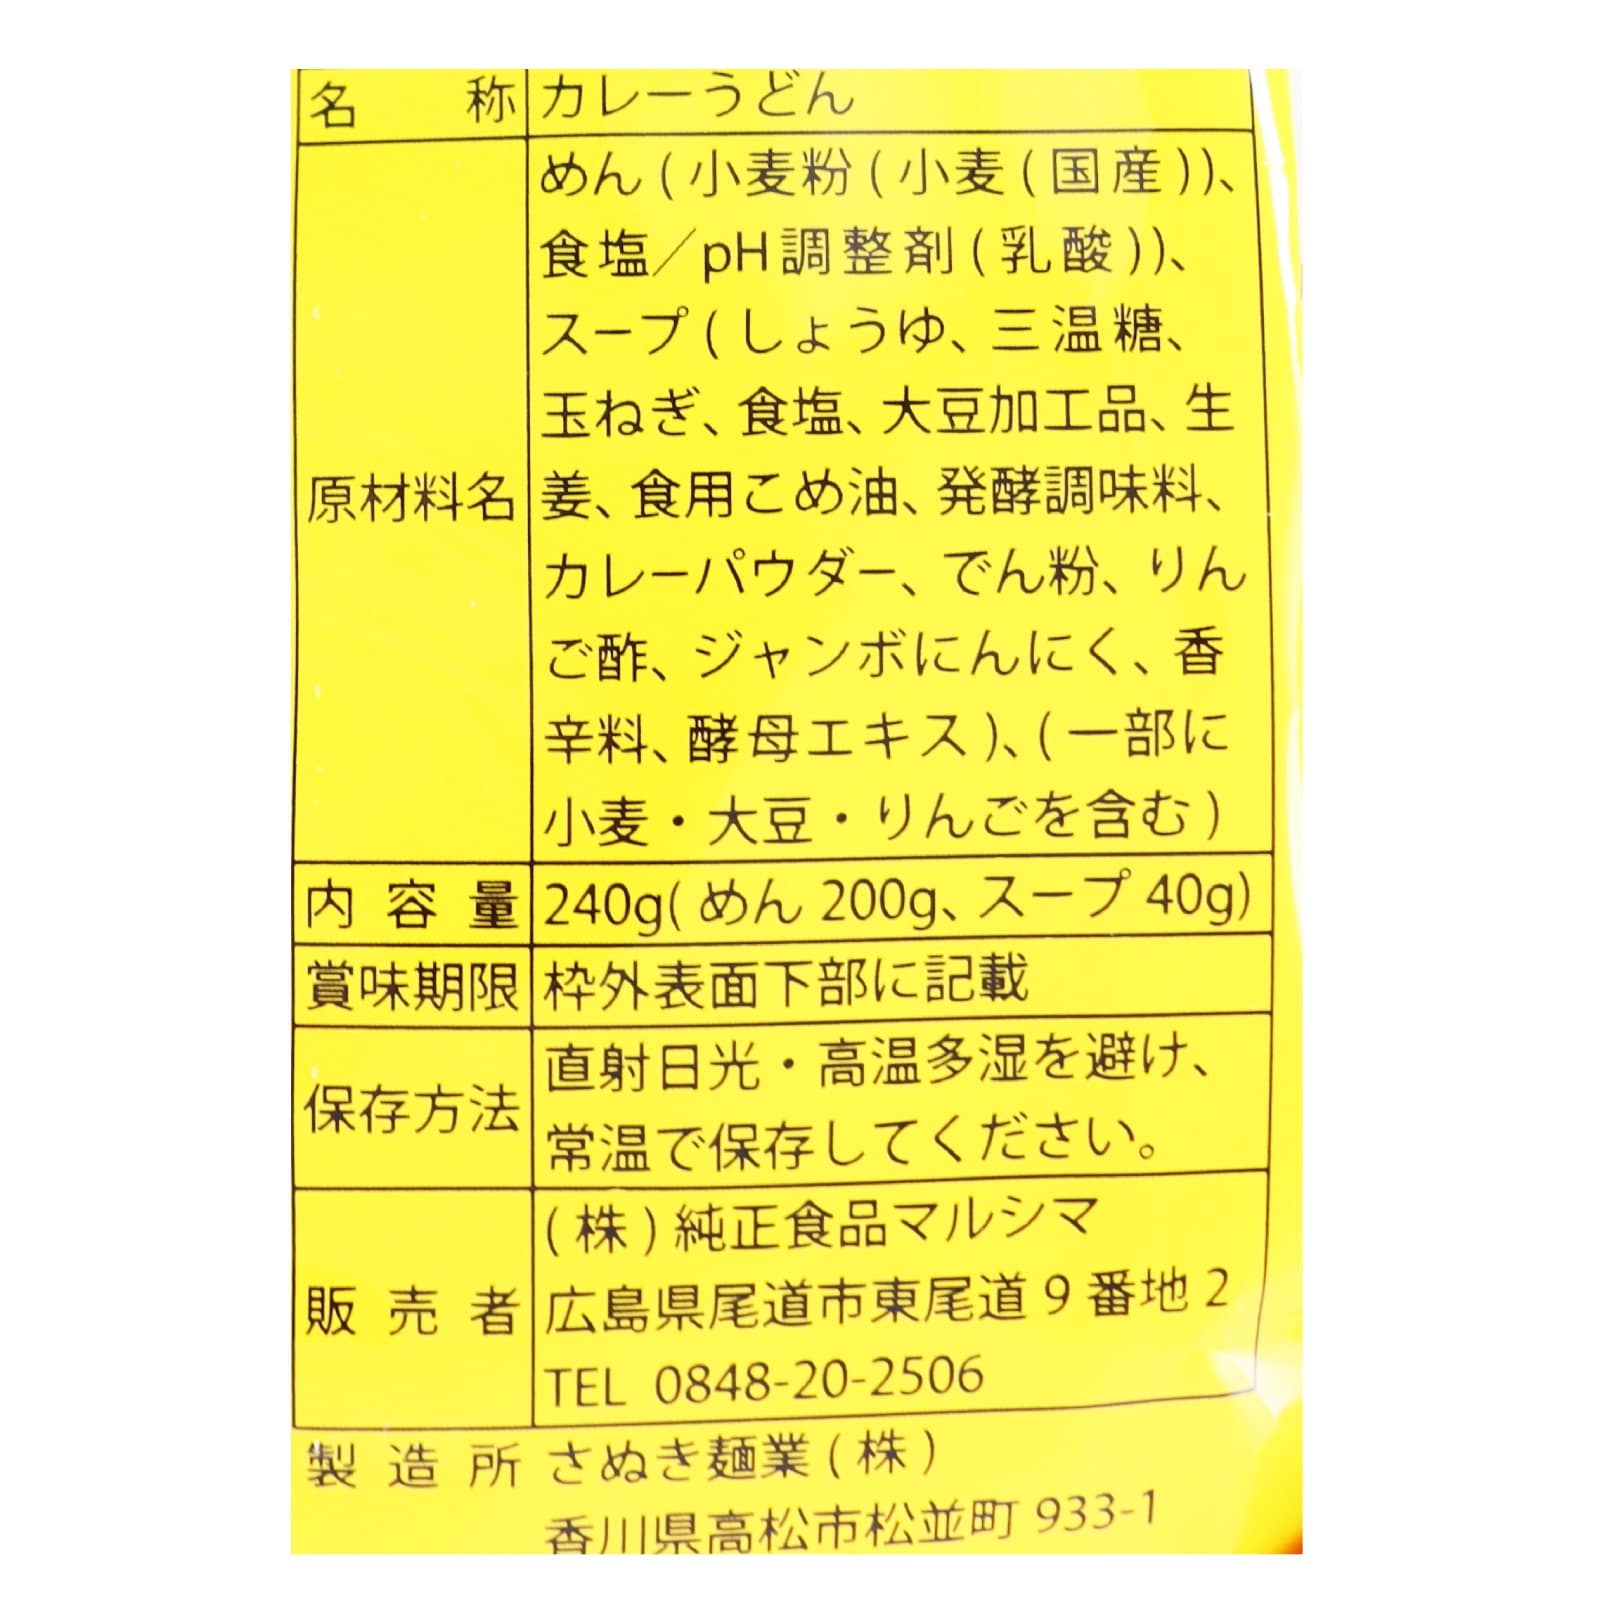 名称 カレーうどん
原材料名 めん(小麦粉(小麦(国産))、
食塩／pH調整剤(乳酸))、
スープ(しょうゆ、三温糖、
玉ねぎ、食塩、大豆加工品、生
姜、食用こめ油、発酵調味料、
カレーパウダー、でん粉、りん
ご酢、ジャンボにんにく、香
辛料、酵母エキス)、(一部に
小麦・大豆・りんごを含む)
内容量 240g(めん200g、スープ40g)
賞味期限 枠外表面下部に記載
保存方法 直射日光・高温多湿を避け、
常温で保存してください。
販売者 (株)純正食品マルシマ
広島県尾道市東尾道9番地2
TEL 0848-20-2506
製造所 さぬき麺業(株)
香川県高松市松並町933-1